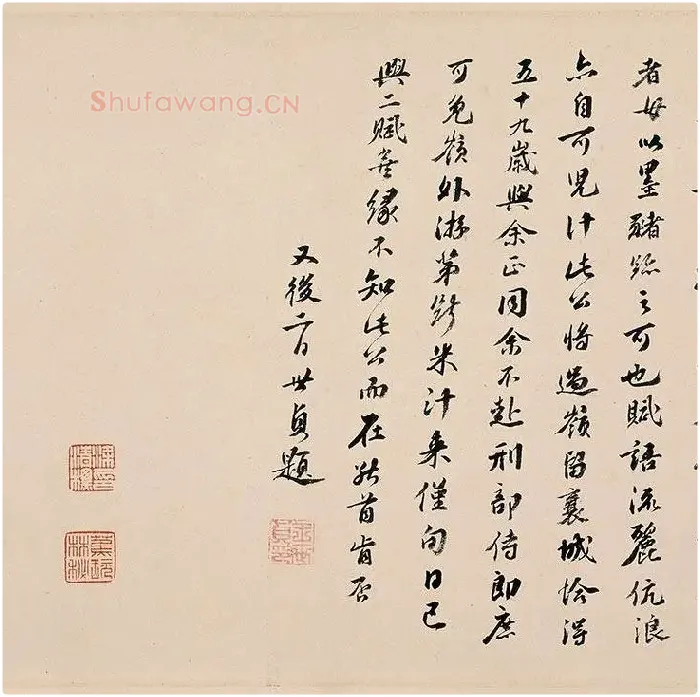 Shufawang.CN
者毋以墨豬跡之可也賦語流麗伉浪
亦自可兒計此公將過嶺留襄城恰得
五十九歲與余正同余不赴刑部侍郎庶
可免嶺外游第斷米汁来僅旬日已
與二賦無緣不知此公而在能首肯否
又後二日世貞題